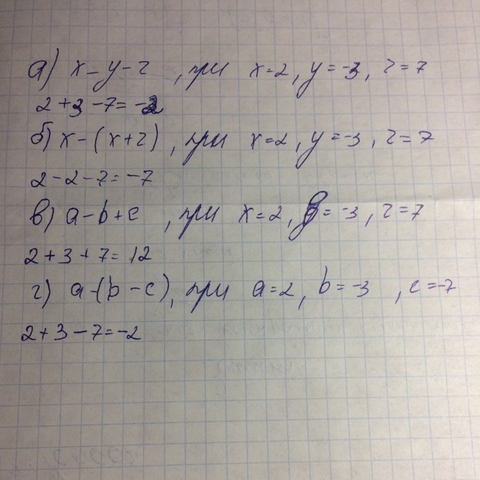 а) x-y-z, при x=2, y=-3, z=7
2+3-7=-2
б) x-(x+z), при x=2, y=-3, z=7
2-2-7=-7
в) a-b+c, при x=2, y=-3, z=7
2+3+7=12
г) a-(b-c), при a=2, b=-3, c=-7
2+3-7=-2